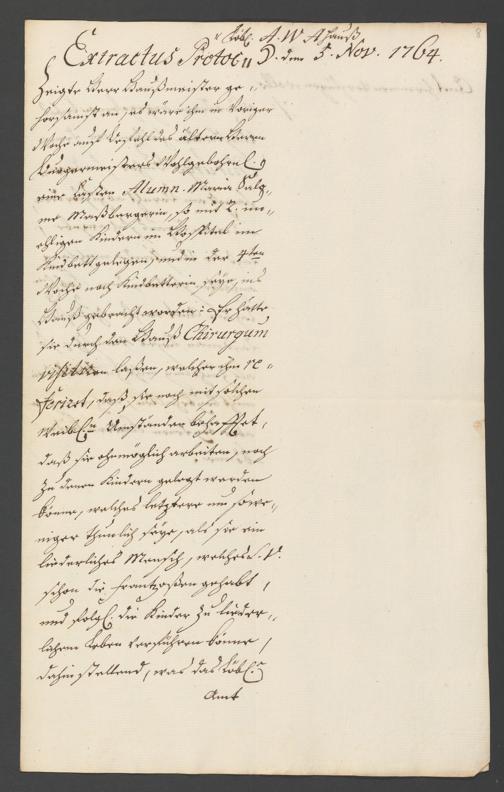 Extractus Protoc: Löbl. A. W. A. Hauß
D. dem 5. Nov. 1764.
Zeigte Herr Haußmeister ge-
horsamst an, es wäre ihm in voriger
Woche auf Befehl des ältern Herrn
Burgermeisters Wohlgebohrn
eine Alumn. Maria Salo-
me Maßbergerin, so mit 2. un-
ehligen Kindern im Hospital im
Kindbett gelegen, und in der 4ten
Woche noch Kindbetterin seye, ins
Hauß gebracht worden: Er hätte
sie durch den Hauß Chirurgum
visitiren laßen, welcher ihm re-
feriret, daß sie noch mit solchen
Weibl. Umständen behafftet,
daß sie ohnmöglich arbeiten, noch
zu denen Kindern gelegt werden
könne, welches letztere um so we-
niger thunlich seye, als sie ein
liederliches Mensch, welches S. V.
schon die Frantzoßen gehabt,
und folgl. die Kinder zu lieder-
lichem Leben verführen könne,
dahin stellend, was das Löbl.
Amt